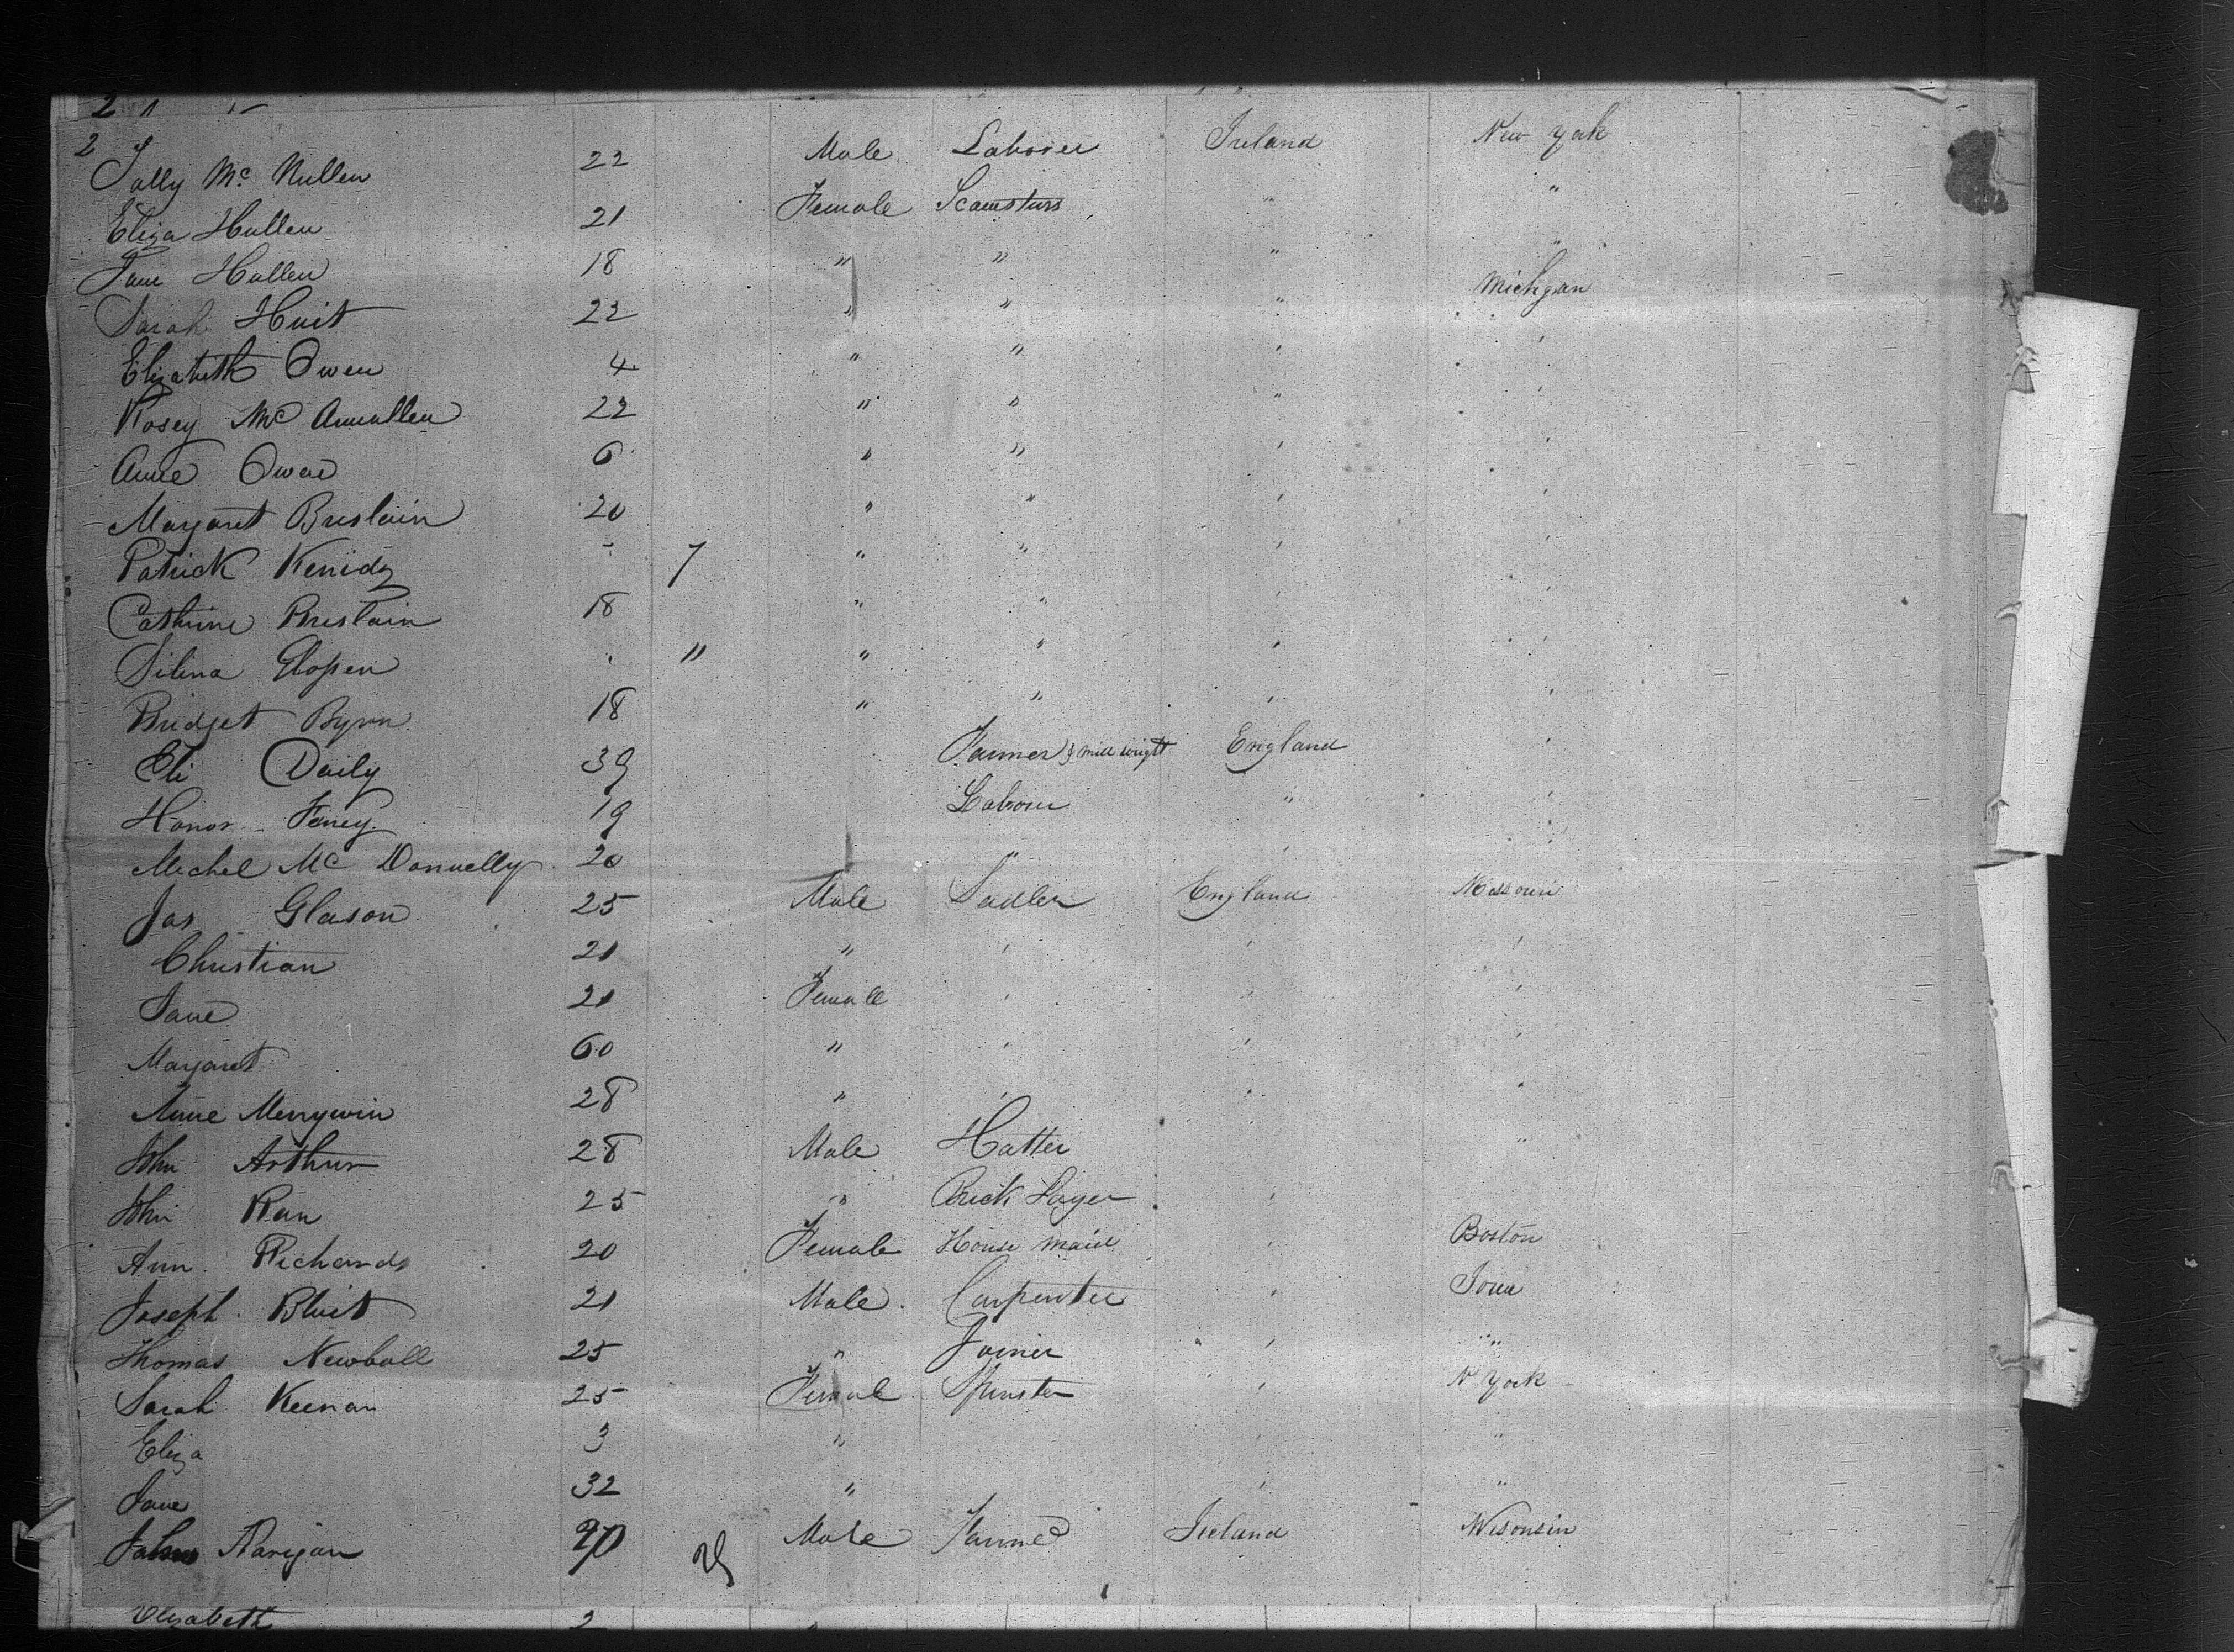 2
Mc Nullen 22 Male Laborer Ireland New York
Eliza Hullen 21 Female Seamstrss " "
Jane Hullen 18 " " " "
Sarah Huit 22 " " " Michgan
Elizabeth Owen 4 " " " "
Rosey Mc Anullen 22 " " " "
Anne Owen 6 " " " "
Margaret Breslain 20 " " " "
Patrick Kenidy 7 " " " "
Cathrine Breslain 18 " " " "
Silina 11 " " " "
Bridget Byrn 18 " " " "
Eli Daily 39 Farmer & Mill wright England "
Honor Feney 19 Labour " "
Michel Mc Donnelly 20 " " "
Jas Glason 25 Male Sadler England Missouri
Christian 21 " " " "
Jane 21 Female " " "
Margaret 60 " " " "
Anne Merrywin 28 " " " "
John Arthur 28 Male Hatter " "
John 25 " Brick Layer "
Ann Richards 20 Female House Maid " Boston
Joseph Bluit 21 Male Carpenter " Ioua
Thomas Newball 25 " Joiner " "
Sarah Keenan 25 Female Spinster " N York
Eliza 3 " " "
Jane 32 " " "
Male Ireland Wisonsin
Elizabeth 2